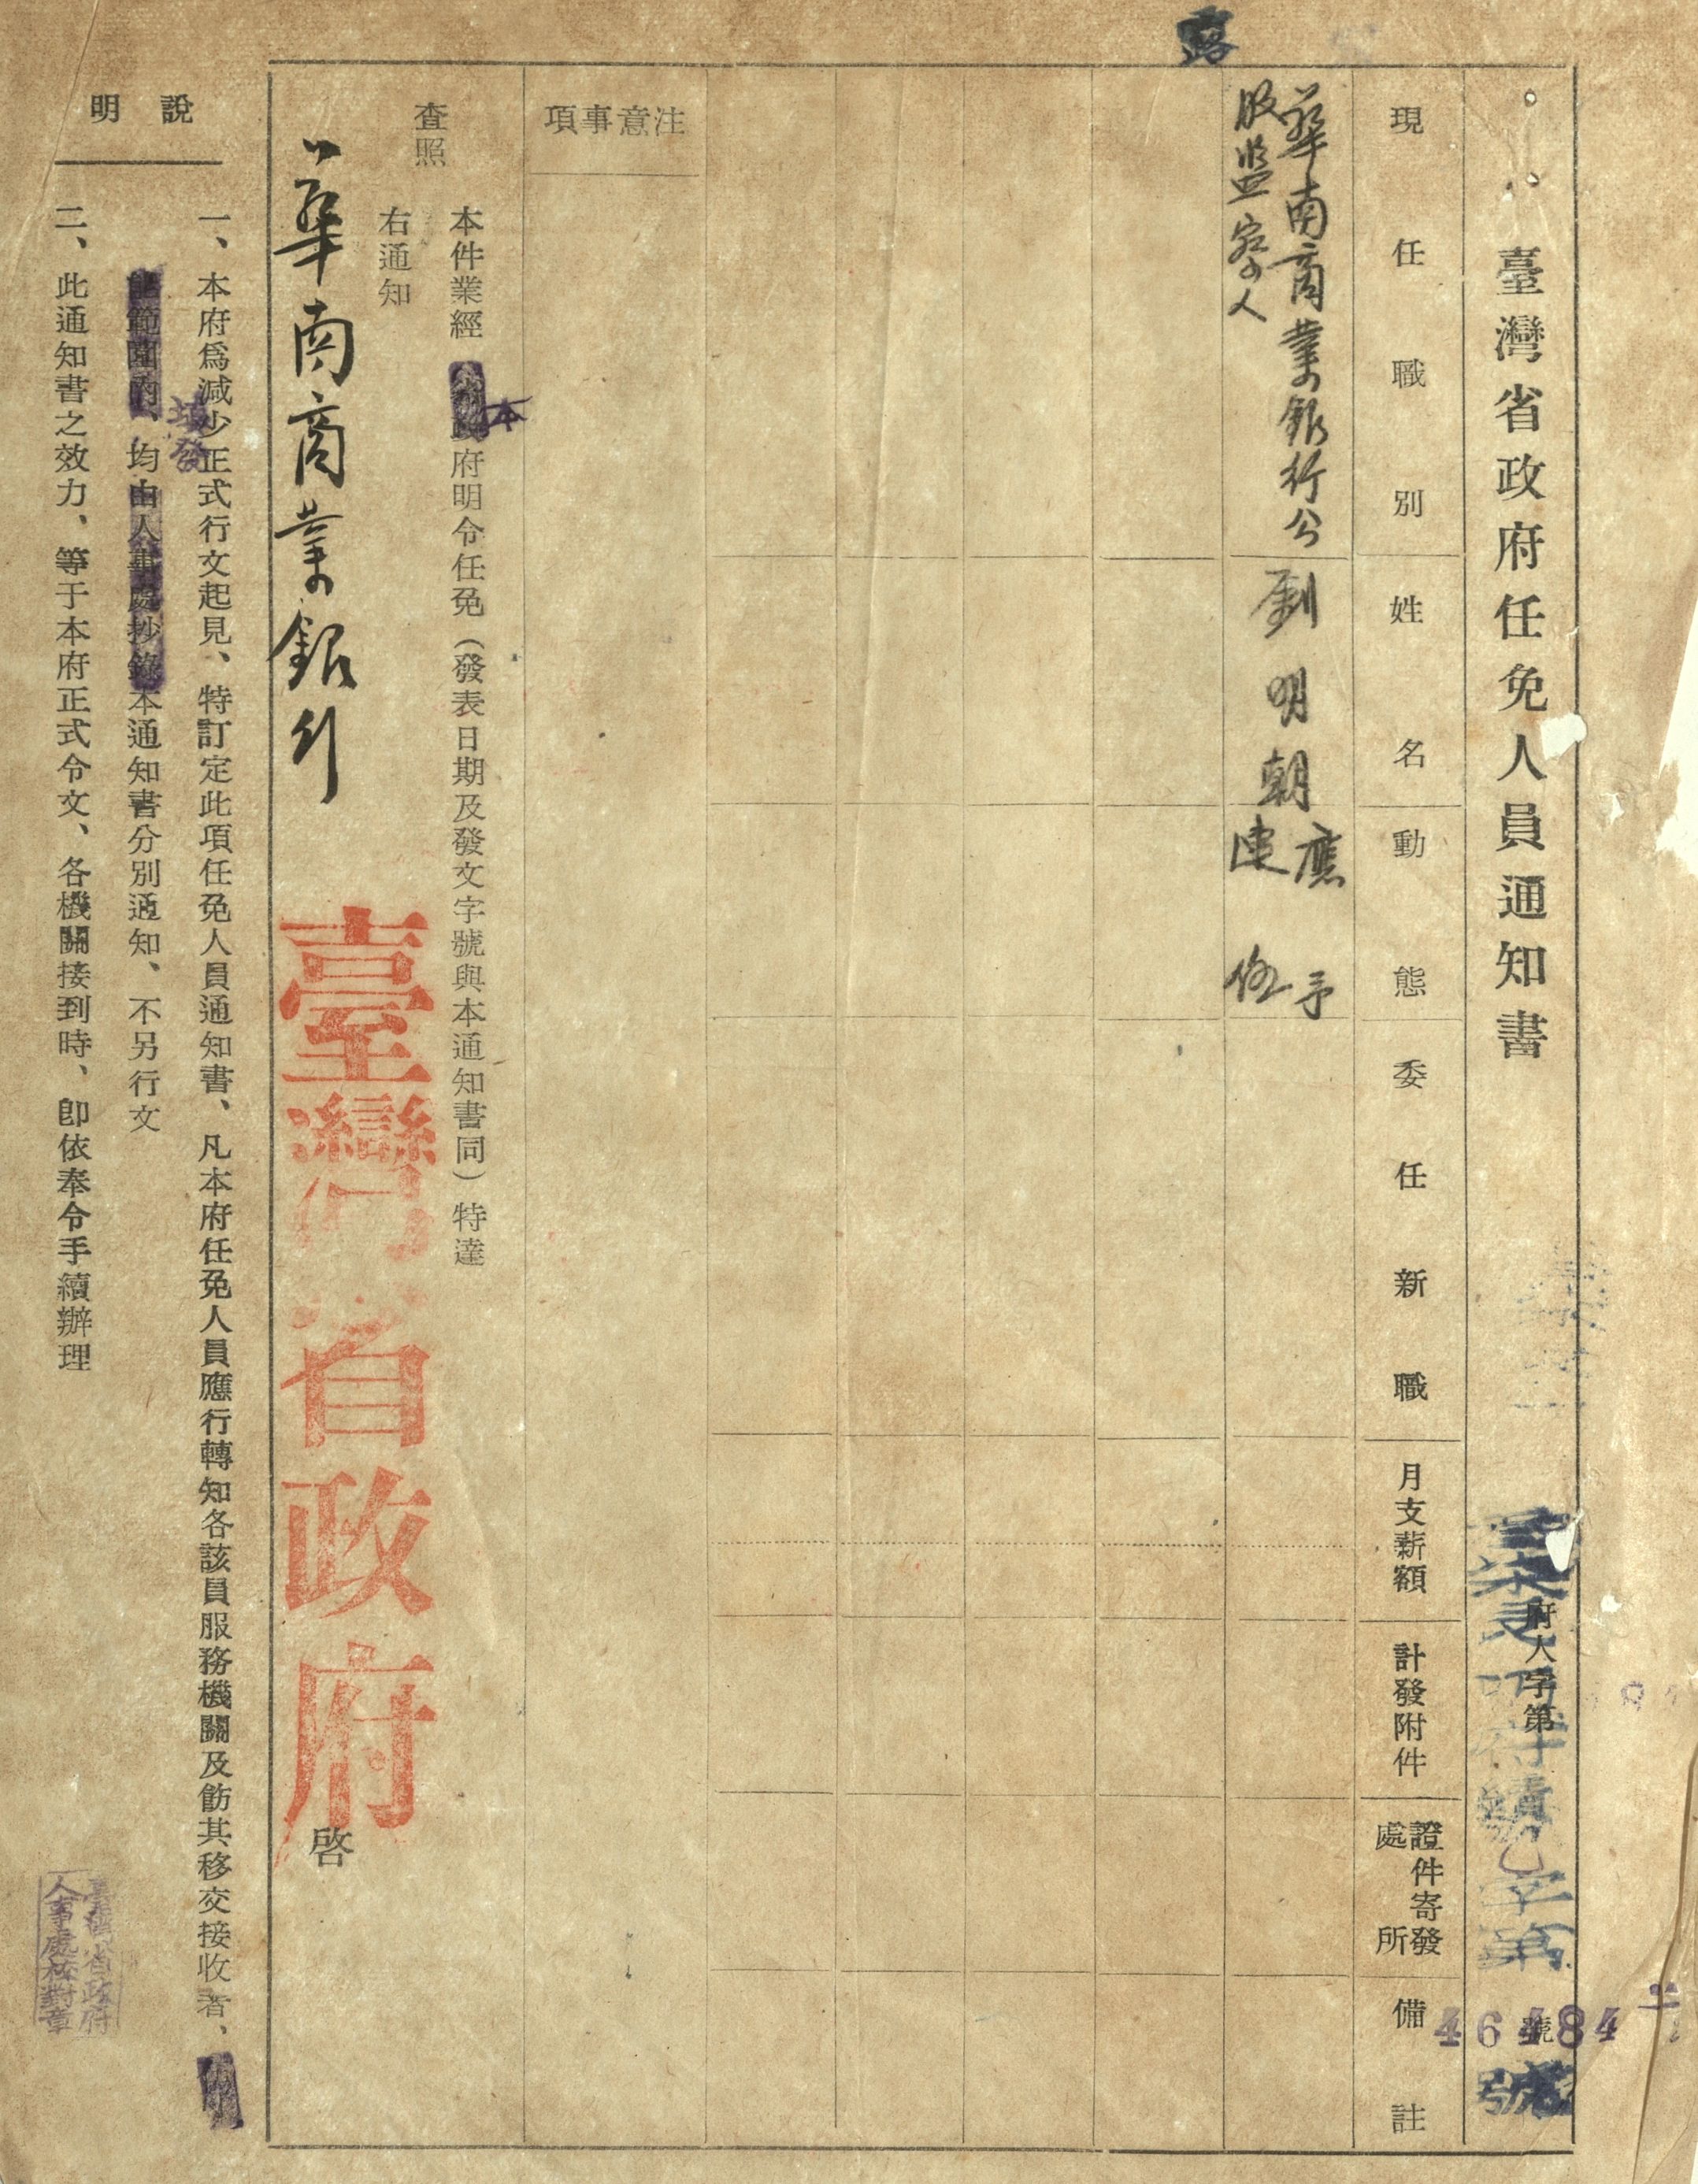 臺灣省政府任免人員通知書
府人字第
號
46484
號
現任職別
姓名
動態
委任新職
月支薪額
計發附件
證件寄發
處所
備註
華南商業銀行公
股監察人
劉明朝
應予
連任
注意事項
本件業經
本
府明令任免（發表日期及發文字號與本通知書同）特達
查照
右通知
華南商業銀行
臺灣省政府
啓
說明
一、本府爲減少正式行文起見、特訂定此項任免人員通知書、凡本府任免人員應行轉知各該員服務機關及飭其移交接收者、
填發
範圍內、均由人事處抄錄本通知書分別通知、不另行文
二、此通知書之效力、等于本府正式令文、各機關接到時、卽依奉令手續辦理
臺灣省政府
人事處校對章